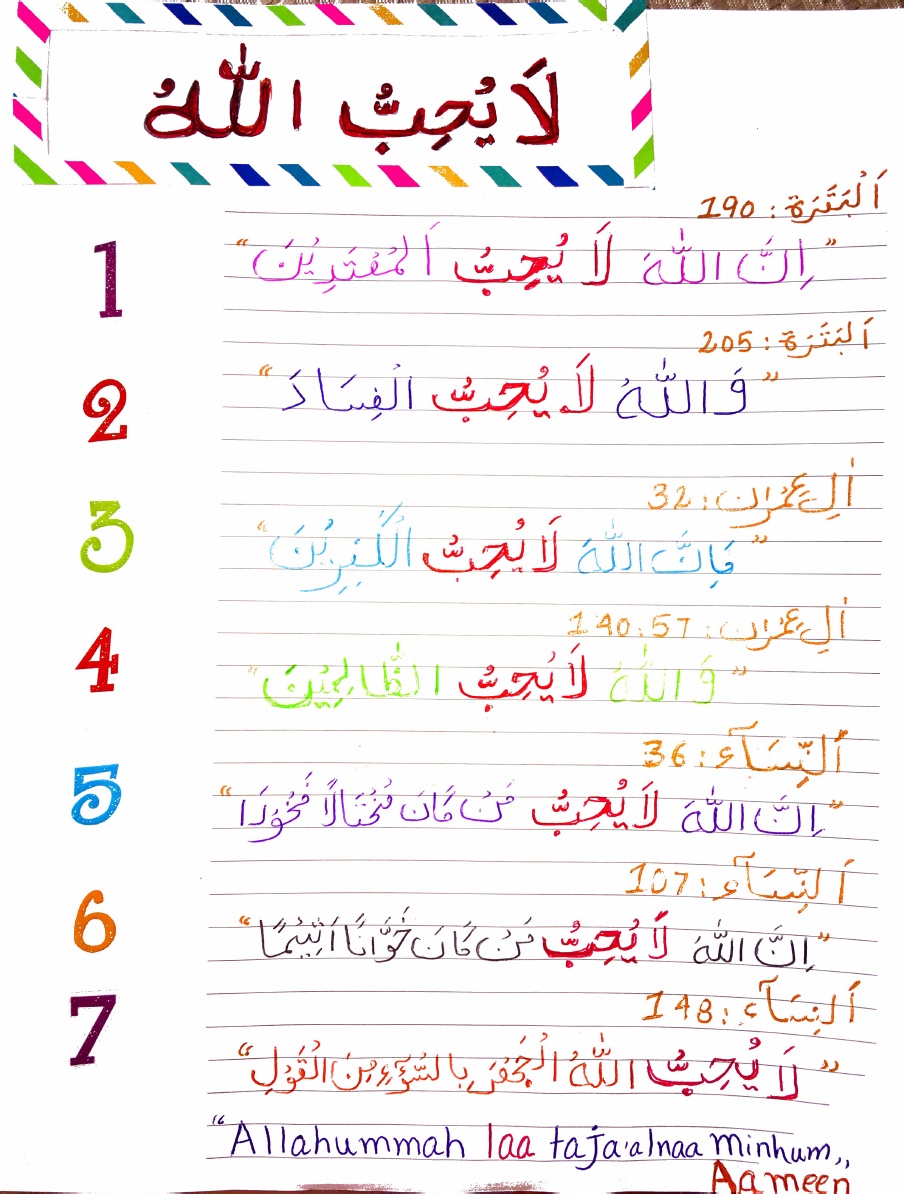 لَا يُحِبُّ اللّٰهُ
اَلْبَقَرَة: 190
1
”اِنَّ اللّٰهَ لَا يُحِبُّ الْمُعْتَدِيْنَ“
اَلبَقَرَة: 205
2
”وَاللّٰهُ لَا يُحِبُّ الْفِسَادَ“
اٰلِ عِمْرٰن: 32
3
”فَاِنَّ اللّٰهَ لَا يُحِبُّ الْكٰفِرِيْنَ“
اٰلِ عِمْرٰن: 140:57
4
”وَاللّٰهُ لَا يُحِبُّ الظَّالِمِيْنَ“
اَلنِّسَآء: 36
5
”اِنَّ اللّٰهَ لَا يُحِبُّ مَنْ كَانَ مُخْتَالًا فَخُوْرَا“
اَلنِّسَآء: 107
6
”اِنَّ اللّٰهَ لَا يُحِبُّ مَنْ كَانَ خَوَّانًا اَثِيْمًا“
اَلنِسَآء: 148
7
”لَا يُحِبُّ اللّٰهُ الْجَهْرَ بِالسُّوْٓءِ مِنَ الْقَوْلِ“
“Allahummah laa taja'alnaa minhum,,
Aameen